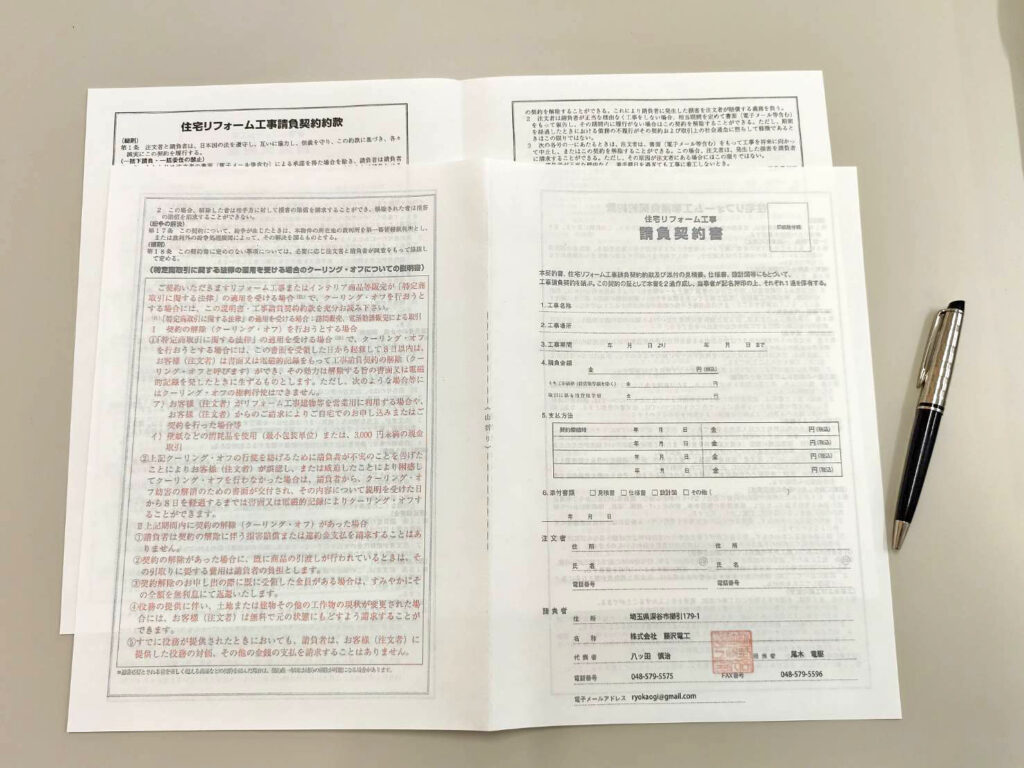 住宅リフォーム工事請負契約約款
(総則)
第1条 注文者と請負者は、日本国の法を遵守し、互いに協力し、信義を守り、この約款に基づき、各々
誠実にこの契約を履行する。
(一括下請負・一括委任の禁止)
の契約を解除することができる。これにより請負者に発生した損害を注文者が賠償する義務を負う。
2 注文者は請負者が正当な理由なく工事をしない場合、相当期間を定めて書面(電子メール等含む)
をもって催告し、その期間内に履行がない場合はこの契約を解除することができる。ただし、期間
を経過したときにおける債務の不履行がその契約および取引上の社会通念に照らして軽微であると
きはこの限りではない。
3 次の各号の一にあたるときは、注文者は、書面(電子メール等含む)をもって工事を将来に向かっ
て中止し、またはこの契約を解除することができる。この場合、注文者は、発生した損害を請負者
に請求することができる。ただし、その原因が注文者にある場合にはこの限りではない。
2 この場合、解除した者は相手方に対して損害の賠償を請求することができ、解除された者は損害
の賠償を請求することができない。
(紛争の解決)
第17条 この契約について、紛争が生じたときは、本物件の所在地の裁判所を第一審管轄裁判所とし、
または裁判外の紛争処理機関によって、その解決を図るものとする。
(補則)
第18条 この契約書に定めのない事項については、必要に応じ注文者と請負者が誠意をもって協議し
て定める。
(特定商取引に関する法律の適用を受ける場合のクーリング・オフについての説明書)
ご契約いただきますリフォーム工事またはインテリア商品等販売が「特定商
取引に関する法律」の適用を受ける場合で、クーリング・オフを行おうと
する場合には、この説明書・工事請負契約約款を充分お読み下さい。
「特定商取引に関する法律」の適用を受ける場合:訪問販売、電話勧誘販売による取引
I 契約の解除(クーリング・オフ)を行おうとする場合
①「特定商取引に関する法律」の適用を受ける場合で、クーリング・オフ
を行おうとする場合には、この書面を受領した日から起算して8日以内は、
お客様(注文者)は書面又は電磁的記録をもって工事請負契約の解除(ク
ーリング・オフと呼びます)ができ、その効力は解除する旨の書面又は電磁
的記録を発したときに生ずるものとします。ただし、次のような場合等に
はクーリング・オフの権利行使はできません。
ア)お客様(注文者)がリフォーム工事建物等を営業用に利用する場合や、
お客様(注文者)からのご請求によりご自宅でのお申し込みまたはご
契約を行った場合等
イ)壁紙などの消耗品を使用(最小包装単位)または、3,000円未満の現金
取引
②上記クーリング・オフの行使を妨げるために請負者が不実のことを告げた
ことによりお客様(注文者)が誤認し、または威迫したことにより困惑し
てクーリング・オフを行わなかった場合は、請負者から、クーリング・オ
フ妨害の解消のための書面が交付され、その内容について説明を受けた日
から8日を経過するまでは書面又は電磁的記録によりクーリング・オフす
ることができます。
II 上記期間内に契約の解除(クーリング・オフ)があった場合
①請負者は契約の解除に伴う損害賠償または違約金支払を請求することはあ
りません。
②契約の解除があった場合に、既に商品の引渡しが行われているときは、そ
の引取りに要する費用は請負者の負担とします。
③契約解除のお申し出の際に既に受領した金員がある場合は、すみやかにそ
の全額を無利息にて返還いたします。
④役務の提供に伴い、土地または建物その他の工作物の現状が変更された場
合には、お客様(注文者)は無料で元の状態にもどすよう請求することが
できます。
⑤すでに役務が提供されたときにおいても、請負者は、お客様(注文者)に
提供した役務の対価、その他の金銭の支払を請求することはありません。
(山折り)
住宅リフォーム工事
請負契約書
本契約書、住宅リフォーム工事請負契約約款及び添付の見積書、仕様書、設計図等にもとづいて、
工事請負契約を結ぶ。この契約の証として本書を2通作成し、当事者が記名押印の上、それぞれ1通を保有する。
1.工事名称
2.工事場所
3.工事期間 年 月 日より 年 月 日まで
4.請負金額
金 円(税込)
金 円
金 円
5.支払方法
契約締結時 年 月 日 金 円(税込)
年 月 日 金 円(税込)
年 月 日 金 円(税込)
年 月 日 金 円(税込)
6.添付書類 □見積書 □仕様書 □設計図 □その他( )
年 月 日
注文者
住所 住所
氏名 氏名
電話番号 電話番号
請負者
住所 埼玉県深谷市櫛引179-1
名称 株式会社 藤沢電工
代表者 八ッ田 慎治 尾木 電駆
電話番号 048-579-5575 FAX番号 048-579-5596
電子メールアドレス ryokaogi@gmail.com